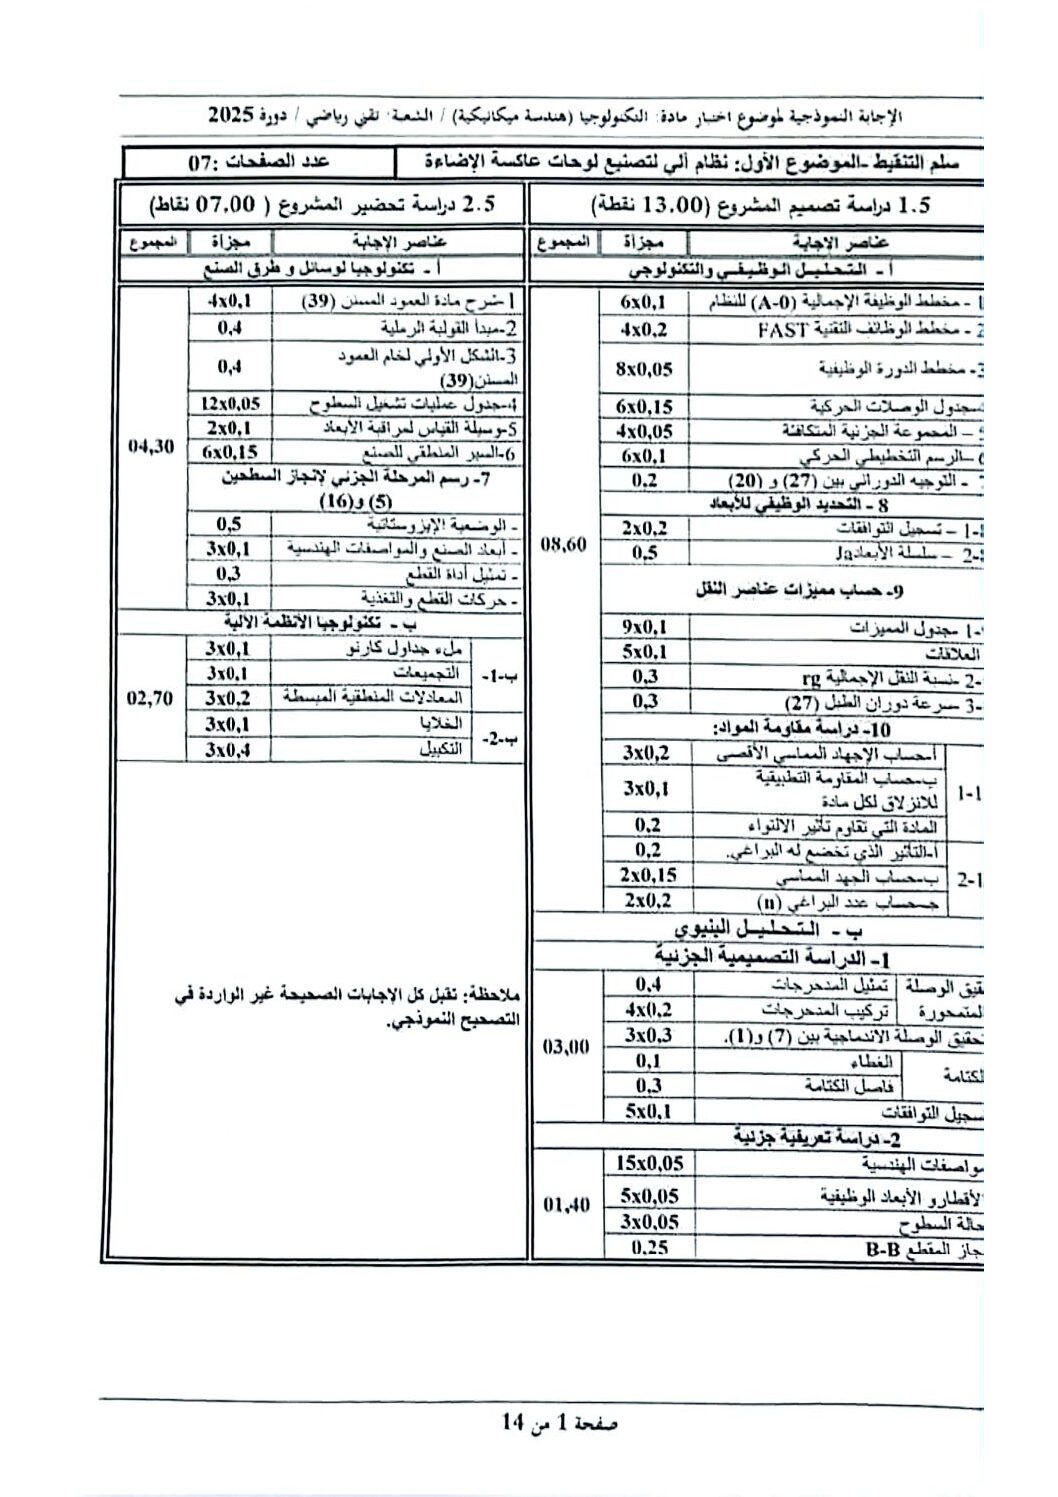 الإجابة النموذجية لموضوع اختبار مادة: التكنولوجيا (هندسة ميكانيكية) / الشعبة: تقني رياضي / دورة 2025
سلم التنقيط -الموضوع الأول: نظام آلي لتصنيع لوحات عاكسة الإضاءة
عدد الصفحات :07
1.5 دراسة تصميم المشروع (13.00 نقطة)
عناصر الإجابة مجزأة المجموع
أ - التحليل الوظيفي والتكنولوجي
1 - مخطط الوظيفة الإجمالية (A-0) للنظام 6x0,1
2 - مخطط الوظائف التقنية FAST 4x0,2
3- مخطط الدورة الوظيفية 8x0,05
جدول الوصلات الحركية 6x0,15
5 – المجموعة الجزئية المتكافئة 4x0,05
6 –الرسم التخطيطي الحركي 6x0,1
7 - التوجيه الدوراني بين (27) و (20) 0,2
8 - التحديد الوظيفي للأبعاد
8-1 – تسجيل التوافقات 2x0,2
8-2 – سلسلة الأبعاد Ja 0,5
9- حساب مميزات عناصر النقل
1- جدول المميزات 9x0,1
العلاقات 5x0,1
2- نسبة النقل الإجمالية rg 0,3
3- سرعة دوران الطبل (27) 0,3
10- دراسة مقاومة المواد:
1-1
أ-حساب الإجهاد المماسي الأقصى 3x0,2
ب-حساب المقاومة التطبيقية للانزلاق لكل مادة 3x0,1
المادة التي تقاوم تأثير الالتواء 0,2
2-1
أ-التأثير الذي تخضع له البراغي. 0,2
ب-حساب الجهد المماسي 2x0,15
جـ-حساب عدد البراغي (n) 2x0,2
08,60
ب - التحليل البنيوي
1- الدراسة التصميمية الجزئية
قيق الوصلة المتمحورة
تمثيل المدحرجات 0,4
تركيب المدحرجات 4x0,2
تحقيق الوصلة الاندماجية بين (7) و(1). 3x0,3
الكتامة
الغطاء 0,1
فاصل الكتامة 0,3
سجيل التوافقات 5x0,1
03,00
2- دراسة تعريفية جزئية
مواصفات الهندسية 15x0,05
الأقطار و الأبعاد الوظيفية 5x0,05
حالة السطوح 3x0,05
جاز المقطع B-B 0,25
01,40
2.5 دراسة تحضير المشروع ( 07.00 نقاط)
عناصر الإجابة مجزأة المجموع
أ - تكنولوجيا لوسائل و طرق الصنع
1-شرح مادة العمود المسنن (39) 4x0,1
2-مبدأ القولبة الرملية 0,4
3-الشكل الأولي لخام العمود المسنن(39) 0,4
4-جدول عمليات تشغيل السطوح 12x0,05
5-وسيلة القياس لمراقبة الأبعاد 2x0,1
6-السير المنطقي للصنع 6x0,15
7- رسم المرحلة الجزئي لإنجاز السطحين (5) و(16)
- الوضعية الإيزوستاتية 0,5
- أبعاد الصنع والمواصفات الهندسية 3x0,1
- تمثيل أداة القطع 0,3
- حركات القطع والتغذية 3x0,1
04,30
ب - تكنولوجيا الأنظمة الآلية
ب-1-
ملء جداول كارنو 3x0,1
التجميعات 3x0,1
المعادلات المنطقية المبسطة 3x0,2
ب-2-
الخلايا 3x0,1
التكبيل 3x0,4
02,70
ملاحظة: تقبل كل الإجابات الصحيحة غير الواردة في
التصحيح النموذجي.
صفحة 1 من 14